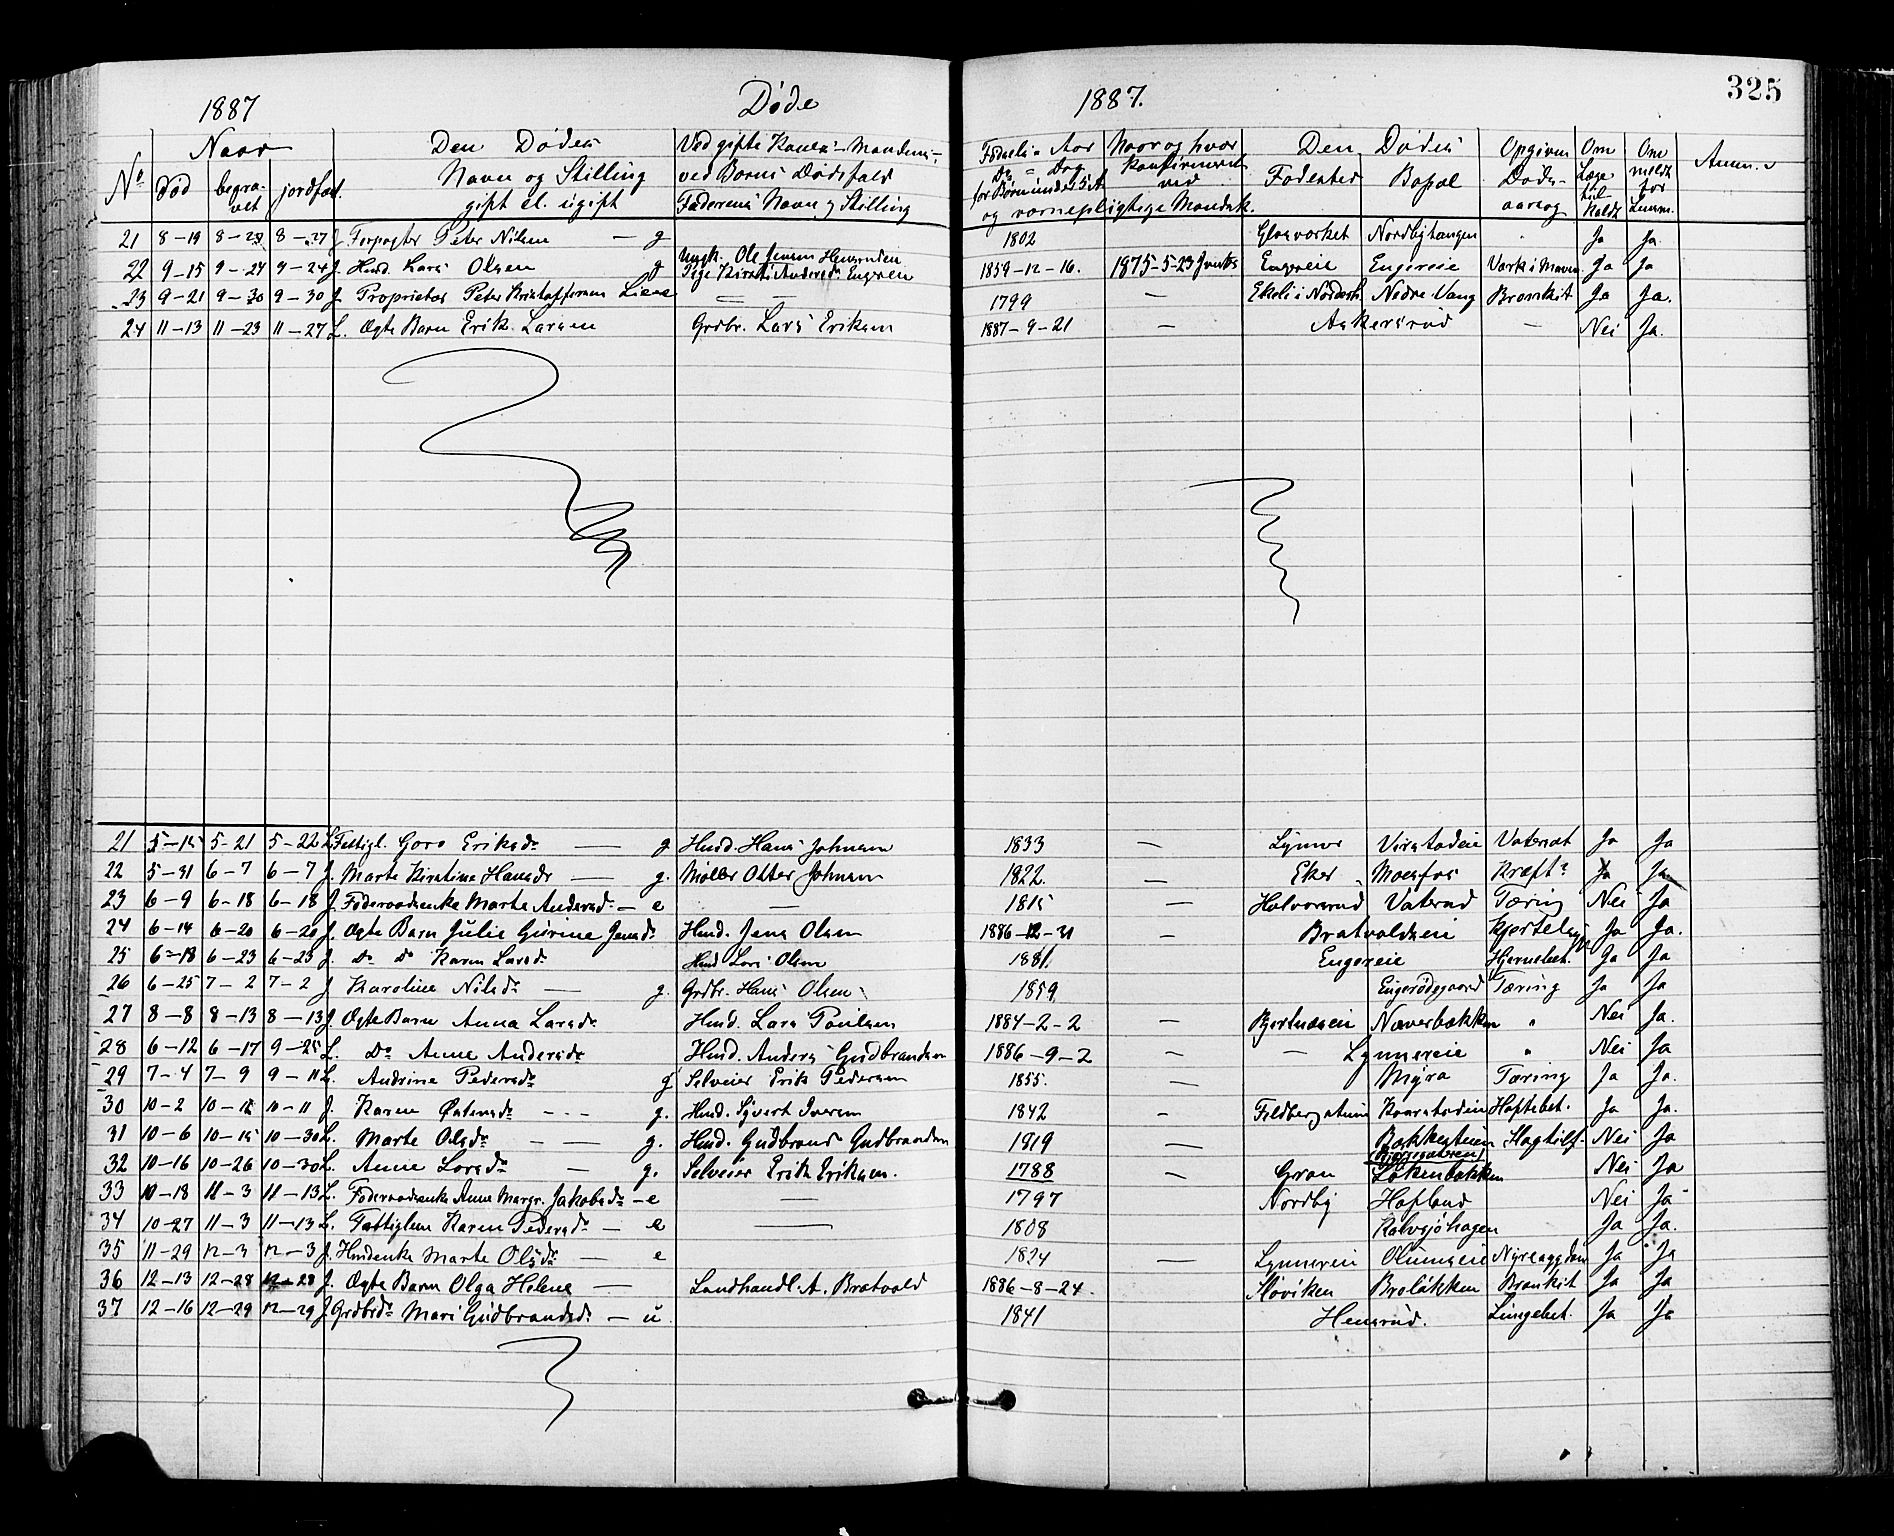 325
1887 Døde 1887.
Naar Den Dødes Ved gifte Koner: Mandens, Fødsels-Aar Naar og hvor Den Dødes Opgiven Om Om Anm.
No død begravet jordfæst. Navn og Stilling gift el. ugift ved Børns Dødsfald Faderens Navn og Stilling Dag for Børn under 5 A og vernepligtige Mandsk. konfirmeret Fødested Bopæl Dødsaarsag Læge tilkaldt meldt for Lensm.
21 8-19 8-27 8-27 J Forpagter Peter Nilsen — g 1802 Glasværket Nordbytangen " Ja Ja.
22 9-15 9-24 9-24 J. Husd. Lars Olsen g Ungk. Ole Jensen Pige Kirsti Andersdr Engeren 1859-12-16. 1875-5-23 Engereie Engereie Værk i Maven Ja Ja
23 9-21 9-30 9-30 J. Proprietær Peter Kristoffersen Lien — — 1799 — Nedre Vang Bronkit Ja Ja.
24 11-13 11-23 11-27 L. Ægte Barn Erik Larsen Grdbr. Lars Eriksen 1887-9-21 — Askersrud — Nei Ja.
21 5-15 5-21 5-22 L Fattigl. Goro Eriksdr — g Husd. Hans Johnsen 1833 — Lynne Virstadeie Vatersot Ja Ja
22 5-31 6-7 6-7 J. Marte Kirstine Hansdr — g. Møller Otter Johnsen 1822. — Eker Moesfos Kræft Ja Ja
23 6-9 6-18 6-18 J. Føderaadsenke Marte Andersdr — e — 1815 — Halvorsrud Vaterud Tæring Nei Ja
24 6-14 6-20 6-20 J. Ægte Barn Julie Gurine Jensdr Husd. Jens Olsen 1886-12-31 — Bratvoldseie Kjertelsyge Ja Ja.
25 6-18 6-23 6-23 J. Do Do Karen Larsdr Husd. Lars Olsen 1881. Engereie Hjernebet. Ja Ja
26 6-25 7-2 7-2 J Karoline Nilsdr — g. Grdbr. Hans Olsen 1859 Engerødegaard Tæring Ja Ja
27 8-8 8-13 8-13 J. Ægte Barn Anna Larsdr Husd. Lars Poulsen 1884-2-2 — Bjertnæseie Næverbækken " Nei Ja.
28 6-12 6-17 9-25 L. Do Anne Andersdr Husd. Anders Gudbrandsen 1886-9-2 — — Lynnereie " Nei Ja
29 7-4 7-9 9-11 L. Andrine Pedersdr g Selveier Erik Pedersen 1855. — Myra Tæring Ja Ja.
30 10-2 10-12 10-11 J. Karen Østensdr — g. Husd. Syvert Iversen 1842 — Feldbergstuen Kvarstadeie Hoftebet. Ja Ja.
31 10-6 10-15 10-30 L. Marte Olsdr — — g. Husd. Gudbrand Gudbrandsen 1819 — Bækkestuen Slagtilf. Nei Ja
32 10-16 10-26 10-30 L. Anne Larsdr — g. Selveier Erik Eriksen. 1788 — Gran Løkenbakken Nei Ja
33 10-18 11-3 11-13 L. Føderaadsenke Anne Margr. Jakobsdr — e — 1797 Nordby Hofland Nei Ja
34 10-27 11-3 11-13 L. Fattiglem Karen Pedersdr — e — 1808 Kalvsjøhagen Ja Ja.
35 11-29 12-3 12-3 J. Husdenke Marte Olsdr — e 1824 — Lynnereie Olimseie Ja Ja
36 12-13 12-28 12-28 J. Ægte Barn Olga Helene — Landhandl. A. Bratvold 1886-8-24. Sløviken Braløkken Bronkit Ja Ja
37 12-16 12-29 12-29 J Grdbrdr Mari Gudbrandsdr — u 1841 Hensrud. Lungebet. Ja Ja